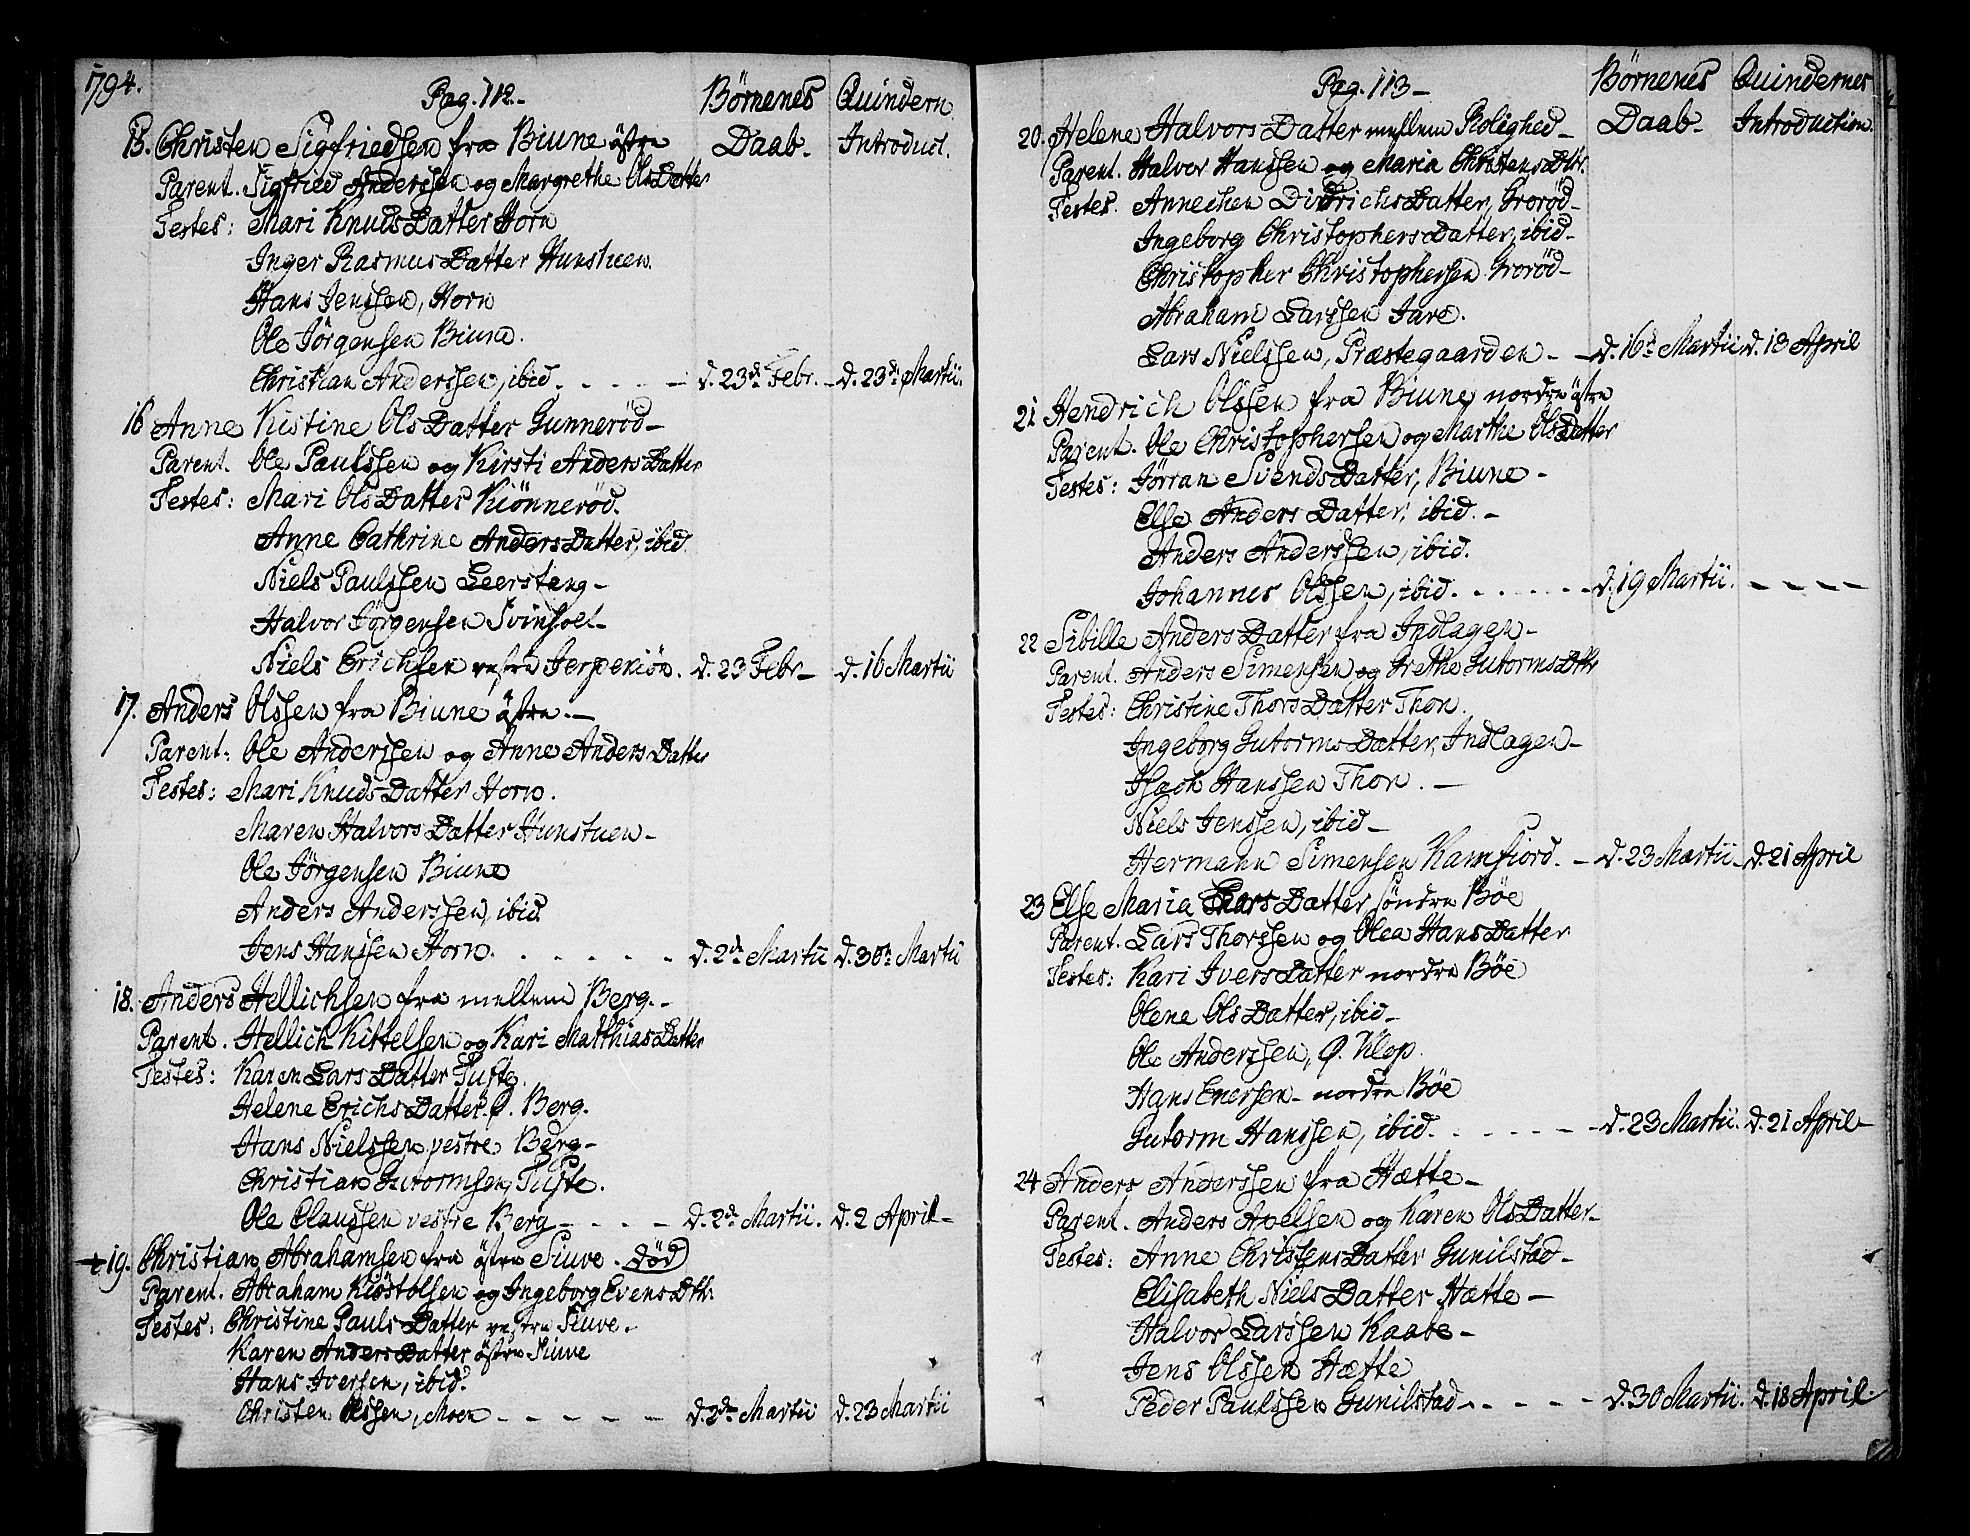 1794.
Pag. 112.-
Börnenes Daab.
Quindern. Introduct.
15. Christen Sigfriedsen fra Biune östre
Parent. Sigfried Anderssen og Margrethe OlsDatter
Testes: Mari KnudsDatter Horn
Inger RasmusDatter Hunstuen.
Hans Jenssen, Horn
Ole Jörgensen Biune.
Christian Anderssen, ibid. - - - - - d. 23d Febr. - d. 23de Martii.
16 Anne Kistine OlsDatter Gunneröd-
Parent. Ole Paulssen og Kirsti AndersDatter
Testes: Mari OlsDatter Kiönneröd.
Anne Cathrine AndersDatter, ibid.
Niels Paulssen Leerstang-
Halvor Jörgensen Svinhoel-
Niels Erichsen vestre Jerpekiön. d. 23 Febr- d. 16 Martii
17. Anders Olssen fra Biune östre.-
Parent: Ole Anderssen og Anne AndersDatter
Testes: Mari KnudsDatter Horn.
Maren HalvorsDatter Hunstuen-
Ole Jörgensen Biune
Anders Anderssen, ibid.
Jens Hanssen Horn. - - - - - d. 2de Martii d. 30te Martii
18. Anders Hellichsen fra mellem Berg.-
Parent. Hellich Kittelsen og Kari MatthiasDatter
Testes: Karen LarsDatter Tufte.
Helene ErichsDatter. Ø. Berg.
Hans Nielssen vestre Berg-
Christian Gutormsen, Tufte.
Ole Claussen vestre Berg - - - - d. 2de Martii. d. 2 April-
19. Christian Abrahamsen fra östre Siuve. död
Parent. Abraham Kiöstolsen og Ingeborg EvensDtr.
Testes: Christine PaulsDatter vestre Siuve.
Karen AndersDatter östre Siuve
Hans Iversen, ibid.
Christen Olssen, Moen - - - - - d. 2de Martii d. 23 Martii
Pag. 113-
Börnenes Daab-
Quindernes Introduction.
20. Helene HalvorsDatter mellem Rolighed-
Parent. Halvor Hanssen og Maria ChristensDtr.
Testes. Annechen DidrichsDatter, Groröd-
Ingeborg ChristophersDatter, ibid-
Christopher Christophersen Groröd-
Abraham Larssen Jare.
Lars Nielssen, Præstegaarden - - d. 16d Martii d. 18 April
21 Hendrich Olssen fra Biune nordre östre
Parent. Ole Christophersen og Marthe OlsDatter
Testes: Jörran SvendsDatter, Biune -
Else AndersDatter, ibid. -
Anders Anderssen, ibid.
Johannes Olssen, ibid. - - - - - d. 19 Martii. - - - -
22 Sibille AndersDatter fra Indlagen-
Parent. Anders Simensen og Grethe GutormsDtr
Testes: Christine ThorsDatter Thon.
Ingeborg GutormsDatter, Indlagen-
Isach Hanssen Thon. -
Niels Jenssen, ibid-
Hermann Simensen Kamfiord. - d. 23 Martii - d. 21 April
23 Else Maria LarsDatter söndre Böe
Parent. Lars Thorssen og Olea HansDatter
Testes: Kari IversDatter nordre Böe
Olene OlsDatter, ibid-
Ole Anderssen, Ø. Klop.
Hans Enersen - nordre Böe
Gutorm Hanssen, ibid. - - - - - d. 23 Martii. d. 21 April-
24 Anders Anderssen fra Hætte-
Parent. Anders Axelsen og Karen OlsDatter-
Testes: Anne ChristensDatter Gunilstad-
Elisabeth NielsDatter Hætte-
Halvor Larssen Kaabe-
Jens Olssen Hætte
Peder Paulssen Gunilstad - - - - - d. 30 Martii. d. 18 April.